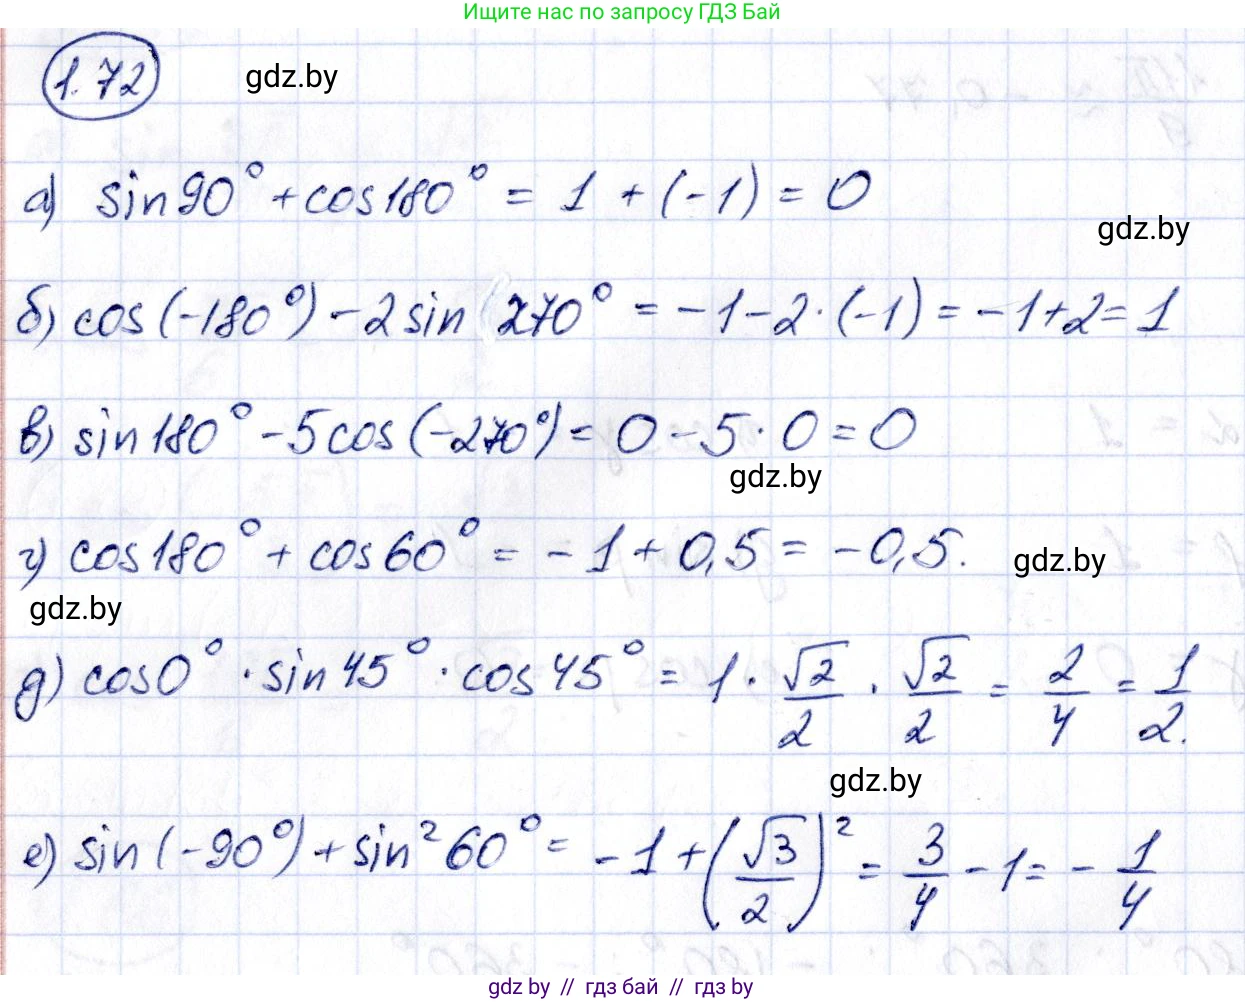 Ищите нас по запросу ГДЗ Бай
1.72 gdz.by
а) sin90° + cos180° = 1 + (-1) = 0
gdz.by
б) cos(-180°) - 2sin 270° = -1 - 2·(-1) = -1+2 = 1
в) sin180° - 5cos(-270°) = 0 - 5·0 = 0
gdz.by
г) cos180° + cos60° = -1 + 0,5 = -0,5.
gdz.by
gdz.by
д) cos0° · sin45° · cos45° = 1 · √2/2 · √2/2 = 2/4 = 1/2.
gdz.by
е) sin(-90°) + sin²60° = -1 + (√3/2)² = 3/4 - 1 = -1/4
gdz.by // гдз бай // гдз by